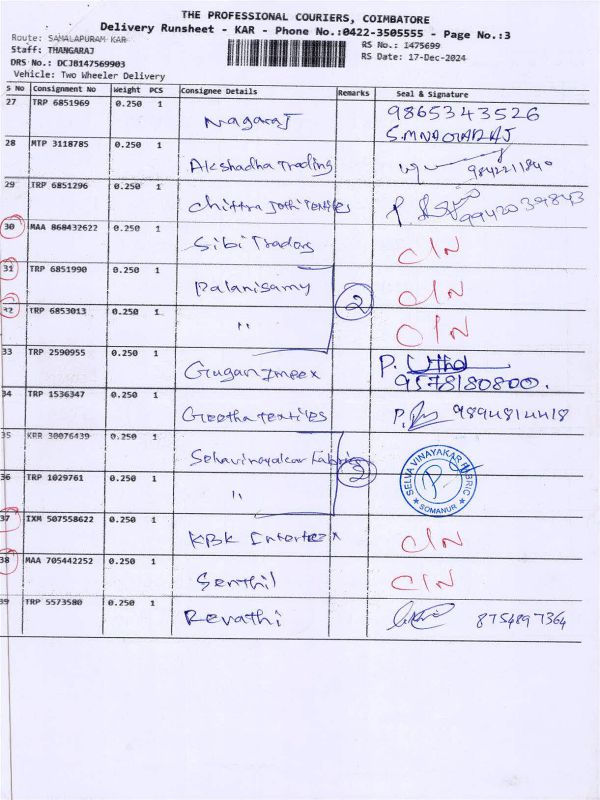 THE PROFESSIONAL COURIERS, COIMBATORE
Delivery Runsheet - KAR - Phone No.:0422-3505555 - Page No.:3
Route: SAMALAPURAM KAR
RS No.: 1475699
Staff: THANGARAJ
RS Date: 17-Dec-2024
DRS No.: DCJ8147569903
Vehicle: Two Wheeler Delivery
S No Consignment No Weight PCS Consignee Details Remarks Seal & Signature
27 TRP 6851969 0.250 1 Nagaraj 9865343526
S.M NAGARAJ
28 MTP 3118785 0.250 1 Akshadha Trading 9842211840
29 TRP 6851296 0.250 1 Chittra Jothi Textiles 9942039843
30 MAA 868432622 0.250 1 Sibi Tradors C/N
31 TRP 6851990 0.250 1 Palanisamy 2 C/N
32 TRP 6853013 0.250 1 " C/N
33 TRP 2590955 0.250 1 Gugan Impex P. Utha
9578180800.
34 TRP 1536347 0.250 1 Geetha textiles 9894814418
35 KRR 30076439 0.250 1 Selvavinayakar Fabrics 2
SELVA VINAYAKAR FABRIC
SOMANUR
36 TRP 1029761 0.250 1 "
37 IXM 507558622 0.250 1 KBK Intertex C/N
38 MAA 705442252 0.250 1 Senthil C/N
39 TRP 5573580 0.250 1 Revathi 8754897364